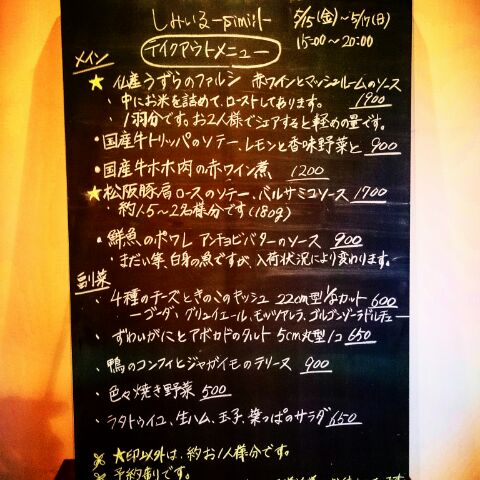 しみいる-pimient-
5/15(金)~5/17(日)
15:00~20:00
テイクアウトメニュー
メイン
★ 仏産うずらのファルシ 赤ワインとマッシュルームのソース 1900
・中にお米を詰めて、ローストしてあります。
・1羽分です。お2人様でシェアすると軽めの量です。
・国産牛トリッパのソテー、レモンと香味野菜と 900
・国産牛ホホ肉の赤ワイン煮 1200
★松阪豚肩ロースのソテー、バルサミコソース 1700
・約1.5~2名様分です(180g)
・鮮魚のポワレ アンチョビバターのソース 900
・まだい等、白身の魚ですが、入荷状況により変わります。
副菜
・4種のチーズときのこのキッシュ 22cm型 1/8カット 600
ーゴーダ、グリュイエール、モッツァレラ、ゴルゴンゾーラドルチェー
・ずわいがにとアボカドのタルト 5cm丸型1コ 650
・鴨のコンフィとジャガイモのテリーヌ 900
・色々焼き野菜 500
・ラタトゥイユ、生ハム、玉子、葉っぱのサラダ 650
※ ★印以外は、約お1人様分です。
※ 予約制りです。